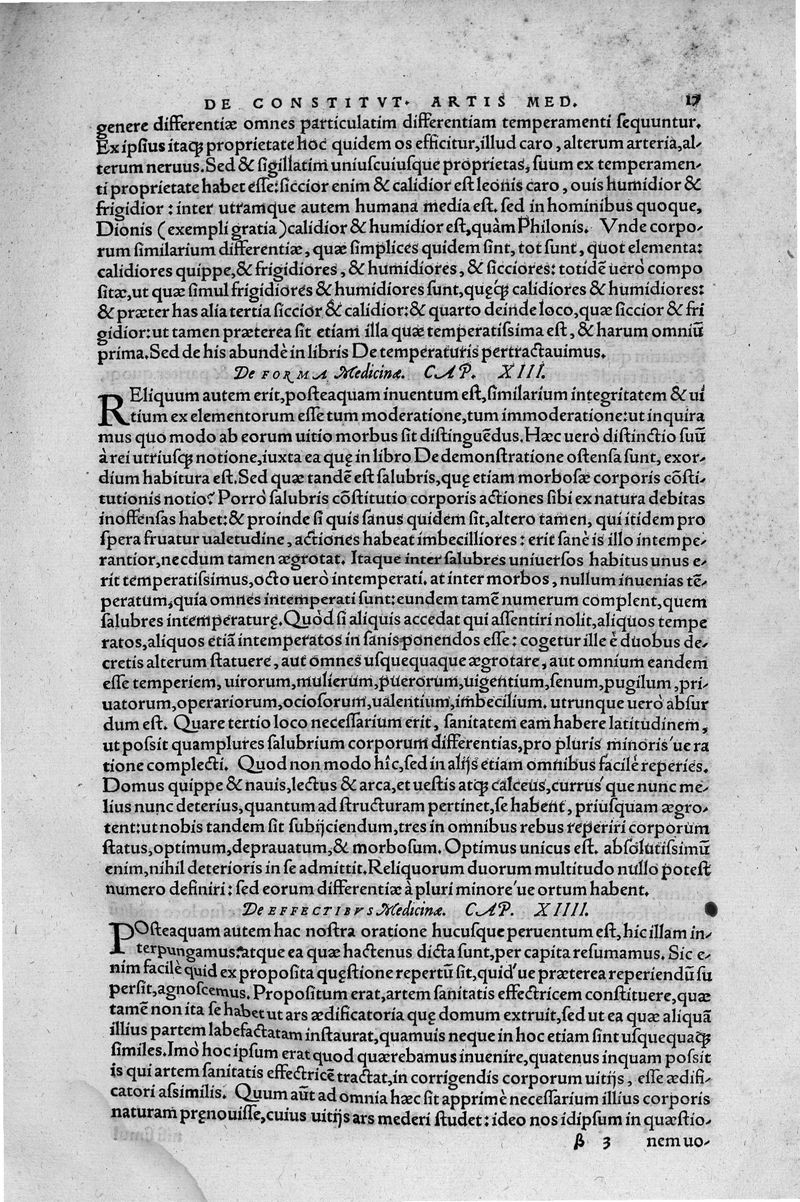 DE CONSTITVT. ARTIS MED. 17
genere differentiæ omnes particulatim differentiam temperamenti ſequuntur.
Ex ipſius itaqꝫ proprietate hoc quidem os efficitur, illud caro, alterum arteria, al-
terum neruus. Sed & ſigillatim uniuſcuiuſque proprietas, ſuum ex temperamen-
ti proprietate habet eſſe: ſiccior enim & calidior eſt leonis caro, ouis humidior &
frigidior: inter utramque autem humana media eſt. ſed in hominibus quoque,
Dionis (exempli gratia) calidior & humidior eſt, quàm Philonis. Vnde corpo-
rum ſimilarium differentiæ, quæ ſimplices quidem ſint, tot ſunt, quot elementa:
calidiores quippe, & frigidiores, & humidiores, & ſicciores: totidẽ uerò compo
ſitæ, ut quæ ſimul frigidiores & humidiores ſunt, quęcqꝫ calidiores & humidiores:
& præter has alia tertia ſiccior & calidior: & quarto deinde loco, quæ ſiccior & fri
gidior: ut tamen præterea ſit etiam illa quæ temperatiſsima eſt, & harum omniũ
prima. Sed de his abundè in libris De temperaturis pertractauimus.
De FORMA Medicinæ. CAP. XIII.
REliquum autem erit, poſteaquam inuentum eſt, ſimilarium integritatem & ui
tium ex elementorum eſſe tum moderatione, tum immoderatione: ut inquira
mus quo modo ab eorum uitio morbus ſit diſtinguẽdus. Hæc uerò diſtinctio ſuũ
à rei utriuſqꝫ notione, iuxta ea quę in libro De demonſtratione oſtenſa ſunt, exor-
dium habitura eſt. Sed quæ tandẽ eſt ſalubris, quę etiam morboſæ corporis cõſti-
tutionis notio? Porrò ſalubris cõſtitutio corporis actiones ſibi ex natura debitas
inoffenſas habet: & proinde ſi quis ſanus quidem ſit, altero tamen, qui itidem pro
ſpera fruatur ualetudine, actiones habeat imbecilliores: erit ſanè is illo intempe-
rantior, necdum tamen ægrotat. Itaque inter ſalubres uniuerſos habitus unus e-
rit temperatiſsimus, octo uerò intemperati. at inter morbos, nullum inuenias tẽ-
peratum, quia omnes intemperati ſunt: eundem tamẽ numerum complent, quem
ſalubres intemperaturę. Quòd ſi aliquis accedat qui aſſentiri nolit, aliquos tempe
ratos, aliquos etiã intemperatos in ſanis ponendos eſſe: cogetur ille è duobus de-
cretis alterum ſtatuere, aut omnes uſquequaque ægrotare, aut omnium eandem
eſſe temperiem, uirorum, mulierum, puerorum, uigentium, ſenum, pugilum, pri-
uatorum, operariorum, ocioſorum, ualentium, imbecilium. utrunque uerò abſur
dum eſt. Quare tertio loco neceſſarium erit, ſanitatem eam habere latitudinem,
ut poſsit quamplures ſalubrium corporum differentias, pro pluris minoris'ue ra
tione complecti. Quod non modo hîc, ſed in alijs etiam omnibus facilè reperies.
Domus quippe & nauis, lectus & arca, et ueſtis atqꝫ calceus, currus'que nunc me-
lius nunc deterius, quantum ad ſtructuram pertinet, ſe habent, priuſquam ægro-
tent: ut nobis tandem ſit ſubijciendum, tres in omnibus rebus reperiri corporum
ſtatus, optimum, deprauatum, & morboſum. Optimus unicus eſt. abſolutiſsimũ
enim, nihil deterioris in ſe admittit. Reliquorum duorum multitudo nullo poteſt
numero definiri: ſed eorum differentiæ à pluri minore'ue ortum habent.
De EFFECTIBVS Medicinæ. CAP. XIIII.
POſteaquam autem hac noſtra oratione hucuſque peruentum eſt, hîc illam in-
terpungamus: atque ea quæ hactenus dicta ſunt, per capita reſumamus. Sic e-
nim facilè quid ex propoſita quęſtione repertũ ſit, quid'ue præterea reperiendũ ſu
perſit, agnoſcemus. Propoſitum erat, artem ſanitatis effectricem conſtituere, quæ
tamẽ non ita ſe habet ut ars ædificatoria quę domum extruit, ſed ut ea quæ aliquã
illius partem labefactatam inſtaurat, quamuis neque in hoc etiam ſint uſquequaqꝫ
ſimiles. Imò hoc ipſum erat quod quærebamus inuenire, quatenus inquam poſsit
is qui artem ſanitatis effectricẽ tractat, in corrigendis corporum uitijs, eſſe ædifi-
catori aſsimilis. Quum aũt ad omnia hæc ſit apprimè neceſſarium illius corporis
naturam pręnouiſſe, cuius uitijs ars mederi ſtudet: ideo nos idipſum in quæſtio-
β 3 nem uo-